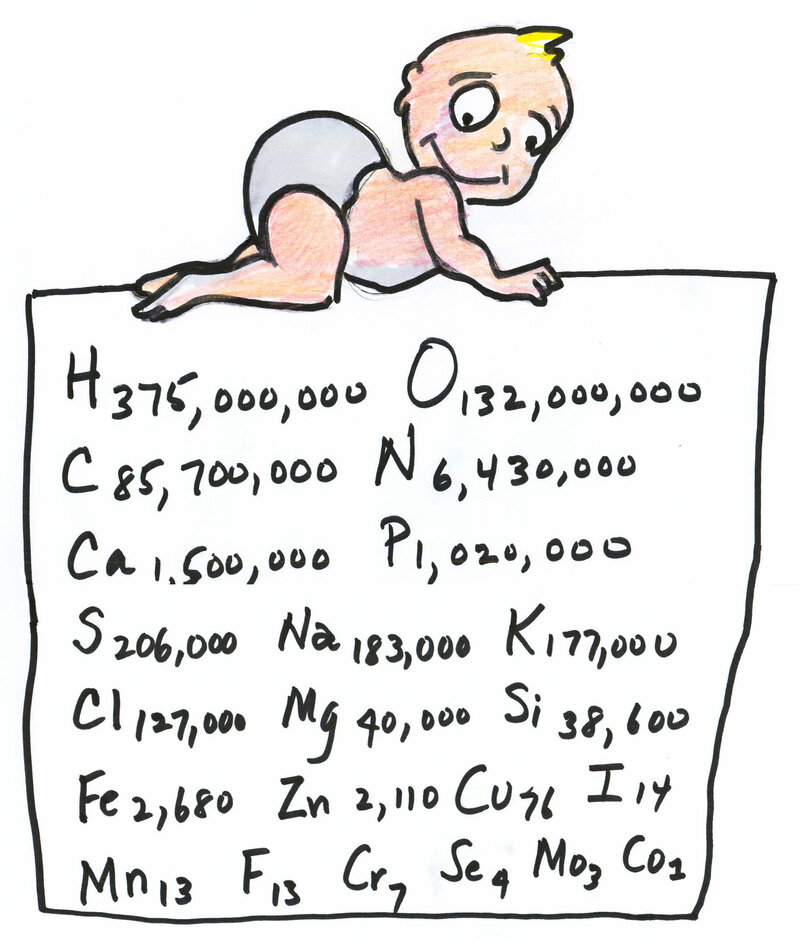 H375,000,000 O132,000,000
C85,700,000 N6,430,000
Ca1.500,000 P1,020,000
S206,000 Na183,000 K177,000
Cl127,000 Mg40,000 Si38,600
Fe2,680 Zn2,110 Cu76 I14
Mn13 F13 Cr7 Se4 Mo3 Co1